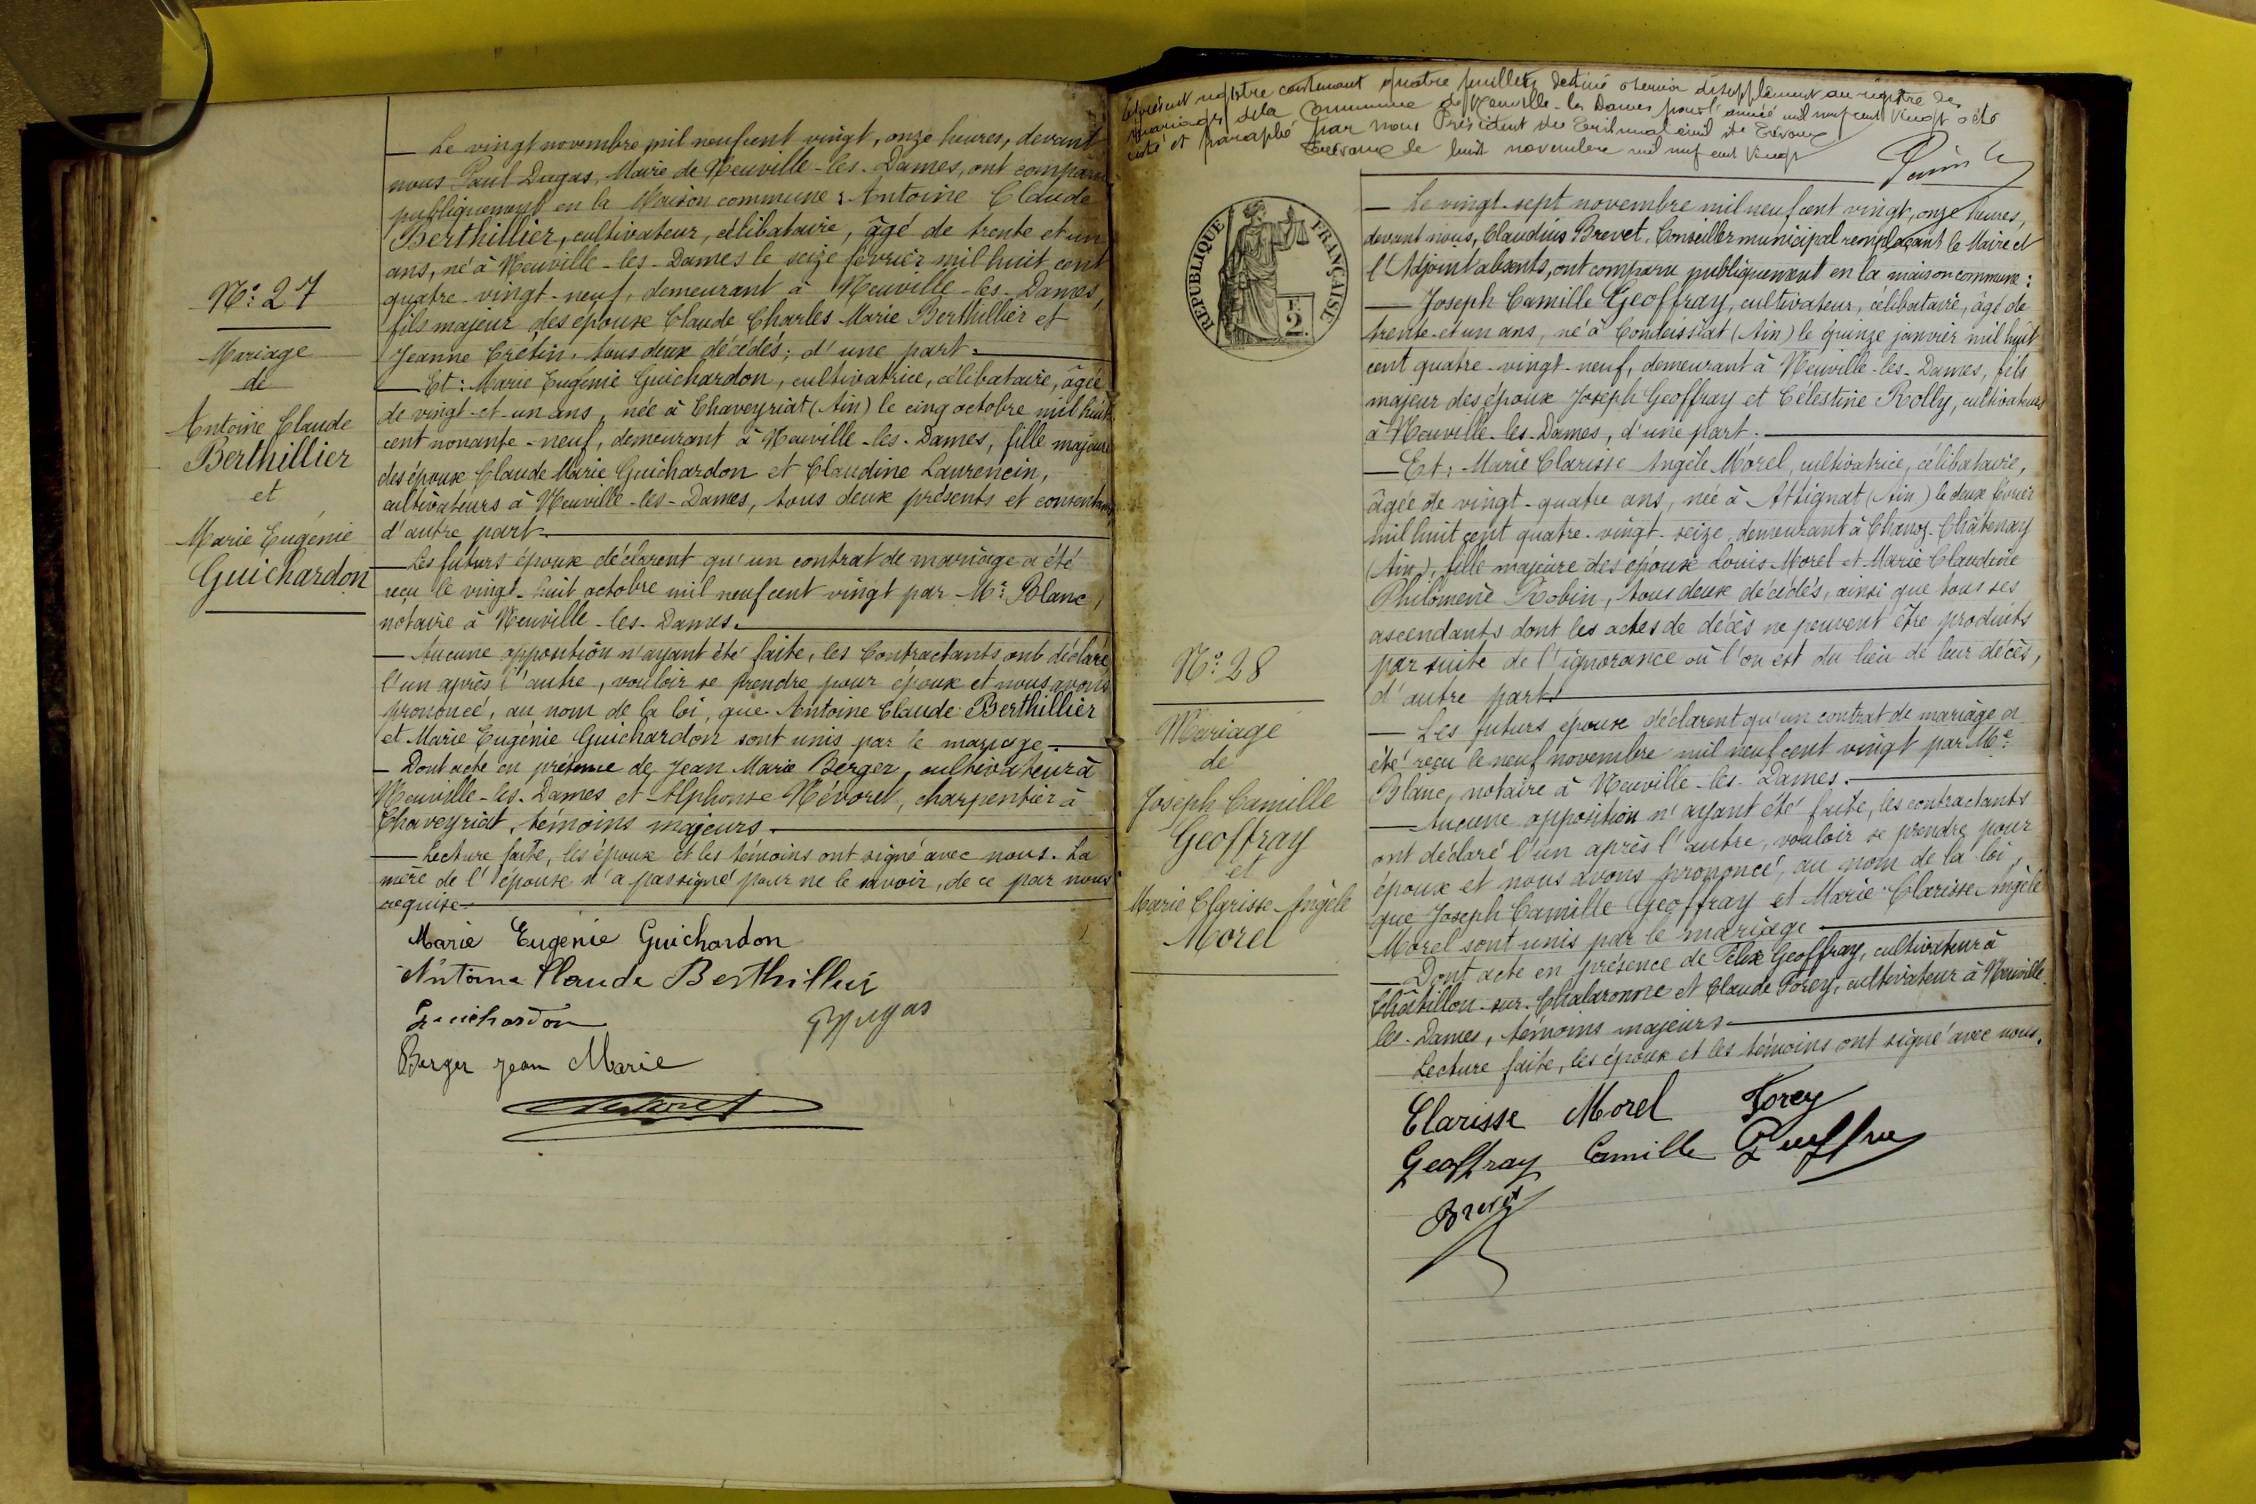 Le vingt novembre mil neuf cent vingt, onze heures, devant
nous Paul Dugas, Maire de Neuville-les-Dames, ont comparu
publiquement en la Maison commune : Antoine Claude
Berthillier, cultivateur, célibataire, âgé de trente et un
ans, né à Neuville-les-Dames le seize février mil huit cent
quatre-vingt-neuf, demeurant à Neuville-les-Dames,
fils majeur des époux Claude Charles Marie Berthillier et
Jeanne Crétin, tous deux décédés ; d'une part.
Et : Marie Eugénie Guichardon, cultivatrice, célibataire, âgée
de vingt-et-un ans, née à Chaveyriat (Ain) le cinq octobre mil huit
cent nonante-neuf, demeurant à Neuville-les-Dames, fille majeure
des époux Claude Marie Guichardon et Claudine Laurencin,
cultivateurs à Neuville-les-Dames, tous deux présents et consentants
d'autre part.
Les futurs époux déclarent qu'un contrat de mariage a été
reçu le vingt-huit octobre mil neuf cent vingt par Me Blanc,
notaire à Neuville-les-Dames.
Aucune opposition n'ayant été faite, les Contractants ont déclaré
l'un après l'autre, vouloir se prendre pour époux et nous avons
prononcé, au nom de la loi, que Antoine Claude Berthillier
et Marie Eugénie Guichardon sont unis par le mariage.
Dont acte en présence de Jean Marie Berger, cultivateur à
Neuville-les-Dames et Alphonse Névoret, charpentier à
Chaveyriat, témoins majeurs.
Lecture faite, les époux et les témoins ont signé avec nous. La
mère de l'épouse n'a pas signé pour ne le savoir, de ce par nous
requise.
No: 27
Mariage
de
Antoine Claude
Berthillier
et
Marie Eugénie
Guichardon
Marie Eugénie Guichardon
Antoine Claude Berthillier
Guichardon
PDugas
Berger Jean Marie
Névoret
Le présent registre contenant quatre feuillets destiné à servir de supplément au registre des
mariages de la Commune de Neuville-les-Dames pour l'année mil neuf cent vingt a été
coté et paraphé par nous Président du Tribunal civil de Trévoux
Trévoux le huit novembre mil neuf cent vingt
RÉPUBLIQUE FRANÇAISE
2
Le vingt-sept novembre mil neuf cent vingt, onze heures,
devant nous, Claudius Brevet, Conseiller municipal remplaçant le Maire et
l'Adjoint absents, ont comparu publiquement en la maison commune :
Joseph Camille Geoffray, cultivateur, célibataire, âgé de
trente-et un ans, né à Condeissiat (Ain) le quinze janvier mil huit
cent quatre-vingt-neuf, demeurant à Neuville-les-Dames, fils
majeur des époux Joseph Geoffray et Célestine Rolly, cultivateurs
à Neuville-les-Dames, d'une part.
Et : Marie Clarisse Angèle Morel, cultivatrice, célibataire,
âgée de vingt-quatre ans, née à Attignat (Ain) le deux février
mil huit cent quatre-vingt-seize, demeurant à Chanoz-Châtenay
(Ain), fille majeure des époux Louis Morel et Marie Claudine
Philomène Robin, tous deux décédés, ainsi que tous ses
ascendants dont les actes de décès ne peuvent être produits
par suite de l'ignorance où l'on est du lieu de leur décès,
d'autre part.
Les futurs époux déclarent qu'un contrat de mariage a
été reçu le neuf novembre mil neuf cent vingt par Me
Blanc, notaire à Neuville-les-Dames.
Aucune opposition n'ayant été faite, les contractants
ont déclaré l'un après l'autre, vouloir se prendre pour
époux et nous avons prononcé, au nom de la loi,
que Joseph Camille Geoffray et Marie Clarisse Angèle
Morel sont unis par le mariage
Dont acte en présence de Félix Geoffray, cultivateur à
Châtillon-sur-Chalaronne et Claude Forey, cultivateur à Neuville-
les-Dames, témoins majeurs
Lecture faite, les époux et les témoins ont signé avec nous.
No: 28
Mariage
de
Joseph Camille
Geoffray
et
Marie Clarisse Angèle
Morel
Clarisse Morel Forey
Geoffray Camille Geoffray
Brevet